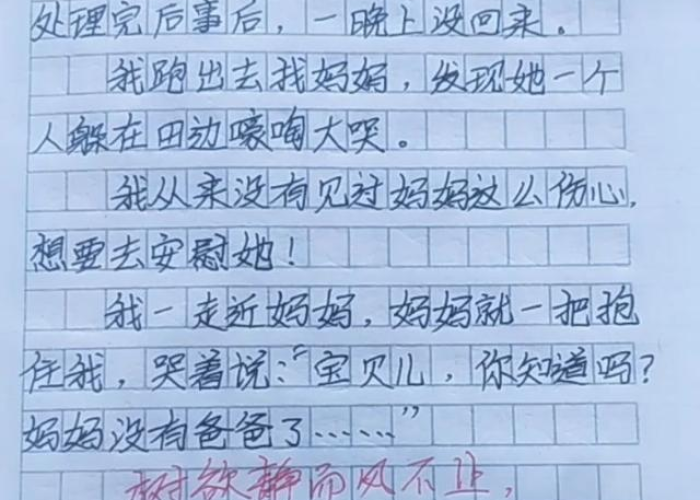 处理完后事后，一晚上没回来。
我跑出去找妈妈，发现她一个
人躲在田边嚎啕大哭。
我从来没有见过妈妈这么伤心，
想要去安慰她！
我一走近妈妈，妈妈就一把抱
住我，哭着说：“宝贝儿，你知道吗？
妈妈没有爸爸了……”
树欲静而风不止，